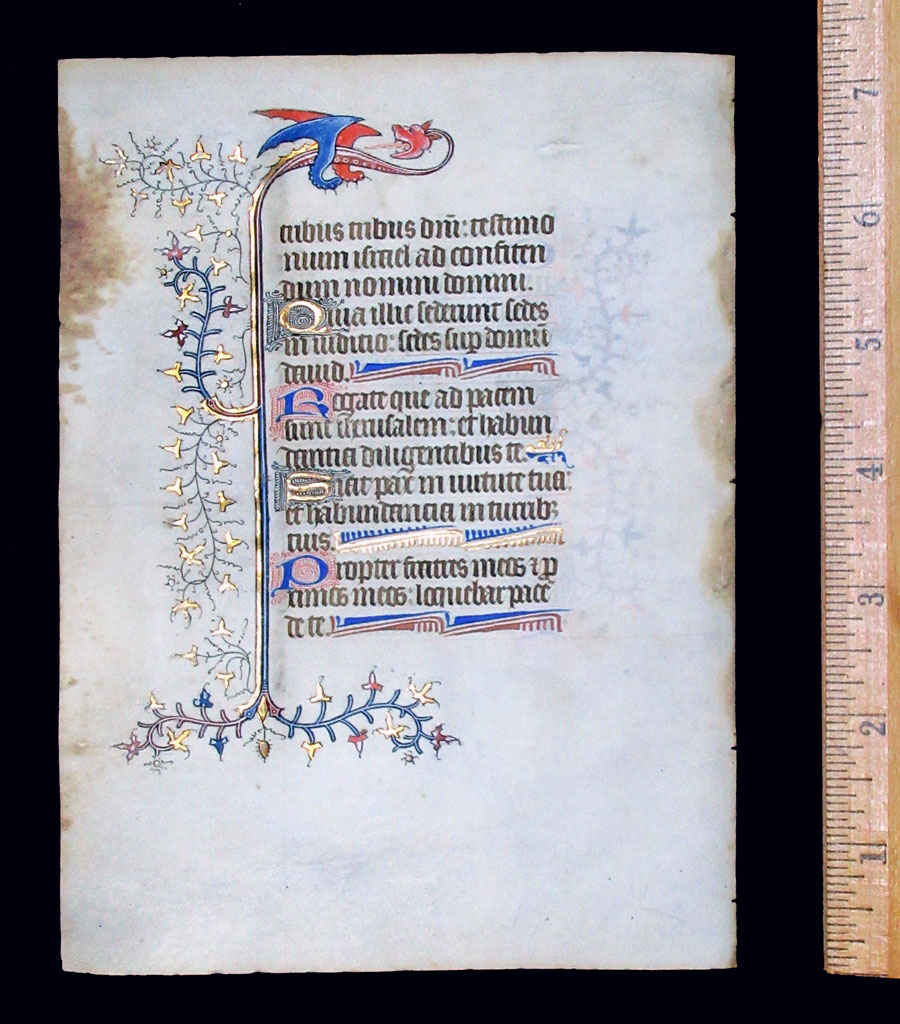 cubus tribus dni: testimo
nium israel ad confiten
dum nomini domini.
Quia illic sederunt sedes
in iudicio: sedes sup domu
dauid.
Rogate que ad pacem
sunt iherusalem: et habun
dantia diligentibus te.
Fiat pax in uirtute tua:
et habundantia in turribꝫ
tuis.
Propter fratres meos ⁊ p
ximos meos: loquebar pace
de te.
7
6
5
4
3
2
1